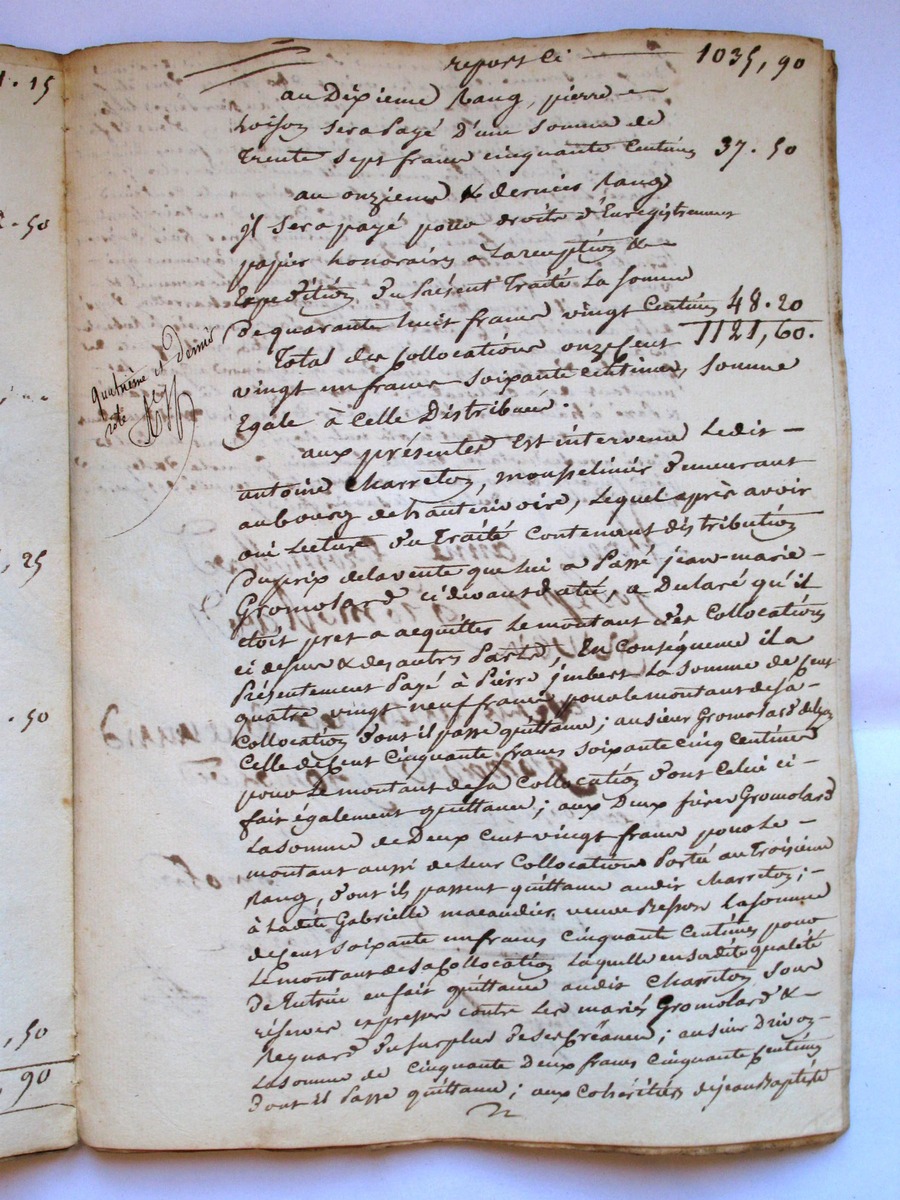 1 . 15
. 50
, 25
. 50
, 50
, 90
quatrième et dernier
rôle
report Ci ——— 1035, 90
au Dixieme Rang, pierre
hoison sera payé D'une Somme de
Trente Sept francs cinquante Centimes 37 . 50
au onzieme & dernier Rang
il Sera payé pour droits d'Enregistrement
papier honoraires a La reception &
Expedition du présent Traité La Somme
De quarante huit francs vingt Centimes 48 . 20
Total des Collocations onze Cent 1121, 60.
vingt un francs Soixante centimes, Somme
Egale à Celle Distribuée.
aux présentes Est intervenu Ledit —
antoine Charreton, mousselinier demeurant
au bourg de hauterivoire, Lequel après avoir
oui Lecture du Traité Contenant distribution
Du prix de la vente que Lui a passé jean-marie
Gromolard ci devant daté, a Déclaré qu'il
étoit pret a acquitter Le montant des Collocations
ci dessus & des autres parts, En Conséquence il a
Présentement Payé à Pierre jmbert La Somme de Cent
quatre vingt neuf francs pour le montant de sa
Collocation dont il passe quittance ; au sieur Gromolard
Celle de Cent Cinquante francs soixante cinq Centimes
pour Le montant de sa Collocation dont Celui ci
fait également quittance ; aux Deux frères Gromolard
La Somme de Deux cent vingt francs pour Le —
montant aussi de Leur Collocation Portée au Troisième
Rang, dont ils passent quittance audit Charreton ;
à Ladite Gabrielle veuve Besson La somme
de Cent soixante un francs cinquante Centimes pour
Le montant de Sa Collocation Laquelle en Sa dite qualité
De Tutrice en fait quittance audit Charreton Sous
réserve expresse contre Les mariés Gromolard &
Regnard du surplus de ses Créances ; au sieur Drivon
La somme de cinquante Deux francs cinquante Centimes
dont il Passe quittance ; aux Cohéritiers de jean Baptiste